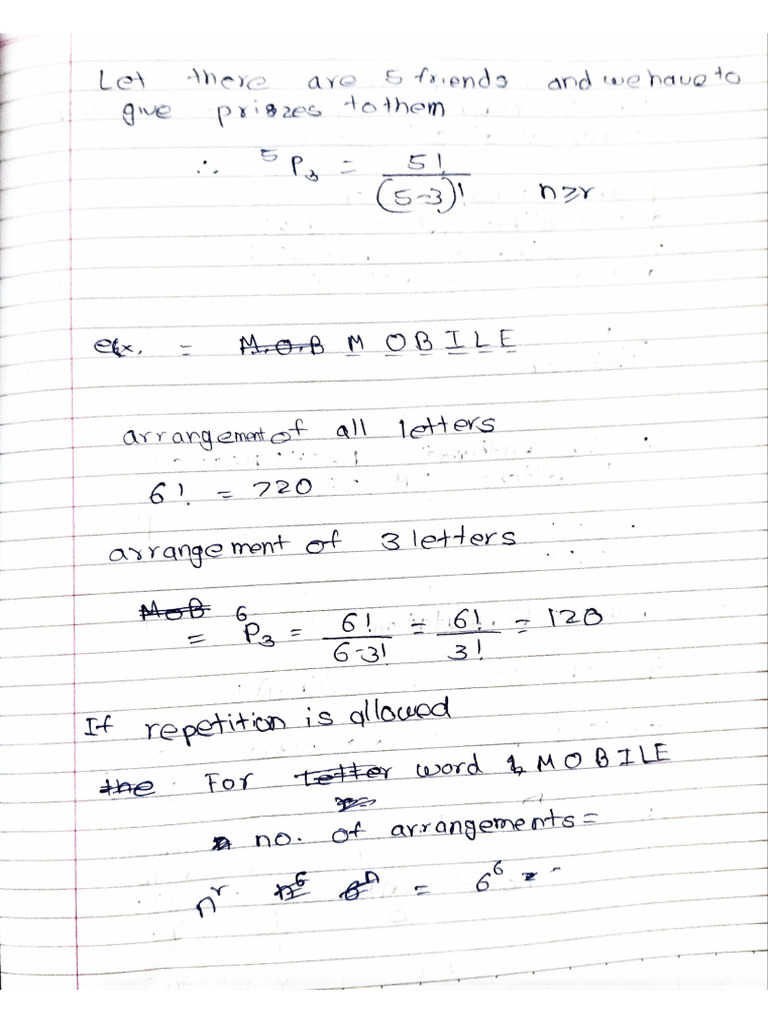 Let there are 5 friends and we have to
give prizes to them
∴ ⁵P₃ = 5! / (5-3)! n≥r
ex. = M.O.B M O B I L E
arrangement of all letters
6! = 720
arrangement of 3 letters
MOB
= ⁶P₃ = 6! / 6-3! = 6! / 3! = 120
If repetition is allowed
the For letter word MOBILE
no. of arrangements =
nʳ n⁶ 6ⁿ = 6⁶ =